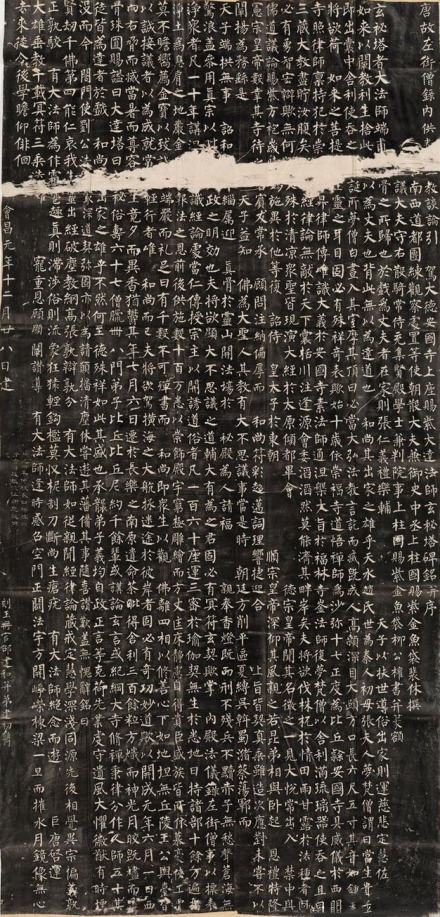 唐故左街僧錄内供 教談論引駕大德安國寺上座賜紫大達法師玄秘塔碑銘并序
南西道都團練觀察處置等使朝散大夫兼御史中丞上柱國賜紫金魚袋裴休撰
議大夫守右散騎常侍充集賢殿學士兼判院事上柱國賜紫金魚袋柳公權書并篆額
玄秘塔者大法師端甫 骨之所歸也於戲爲丈夫者在家則張仁義禮樂輔 天子以扶世導俗出家則運慈悲定慧佐
如来以闡教利生捨此 以爲丈夫也背此無以爲達道也 和尚其出家之雄乎天水趙氏世爲秦人初母張夫人夢梵僧謂曰當生貴子
即出囊中舍利使吞之 誕所夢僧白晝入其室摩其頂曰必當大弘法教言訖而滅既成人高顙深目大頤方口長六尺五寸其音如鍾夫
將欲荷 如来之菩提 生靈之耳目固必有殊祥奇表歟始十歲依崇福寺道悟禪師爲沙彌十七正度爲比丘隸安國寺具威儀於西明
寺照律師禀持犯於崇 昇律師傳唯識大義於安國寺素法師通涅槃大旨於福林寺崟法師復夢梵僧以舍利滿琉璃器使吞之且曰
三藏大教盡貯汝腹矣 經律論無敵於天下囊括川注逢源會委滔滔然莫能濟其畔岸矣夫將欲伐株杌於情田雨甘露於法種者固
必有勇智宏辯歟無何 殊於清涼衆聖皆現演大經於太原傾都畢會 德宗皇帝聞其名徵之一見大悅常出入 禁中與
儒道議論賜紫方袍歲 施異於他等復 詔侍 皇太子於東朝 順宗皇帝深仰其風親之若昆弟相與卧起 恩禮特隆
憲宗皇帝數幸其寺待 賓友常承 顧問注納偏厚而 和尚符彩超邁詞理響捷迎合 上旨皆契真乘雖造次應對未嘗不以
闡揚爲務繇是 天子益知 佛爲大聖人其教有大不思議事當是時 朝廷方削平區夏縛吳斡蜀瀦蔡蕩鄆而
天子端拱無事 詔和 緇屬迎 真骨於靈山開法場於 秘殿爲人請福 親奉香燈既而刑不殘兵不黷赤子無愁聲蒼海無
驚浪盖參用真宗以毗 政之明效也夫將欲顯大不思議之道輔大有爲之君固必有冥符玄契歟掌 内殿法儀錄左街僧事以摽表
淨衆者凡一十年講涅 識經論處當仁傳授宗主以開誘道俗者凡一百六十座運三密於瑜伽契無生於悉地日持諸部十餘万遍指
淨土爲息肩之地嚴金 報法之恩前後供施數十百万悉以崇飾殿宇窮極雕繪而方丈匡床靜慮自得貴臣盛族皆所依慕豪俠工賈
莫不瞻嚮薦金寶以致誠 端嚴而礼足日有千數不可殫書而 和尚即衆生以觀 佛離四相以修善心下如地坦無丘陵王公輿臺皆
以誠接議者以爲成就常 輕行者唯 和尚而已夫將欲駕橫海之大航拯迷途於彼岸者固必有奇功妙道歟以開成元年六月一日西
向右脇而滅當暑而尊容 生竟夕而異香猶鬱其年七月六日遷於長樂之南原遺命荼毗得舍利三百餘粒方熾而神光月皎既燼而靈
骨珠圓賜謚曰大達塔曰 秘俗壽六十七僧臘卌八門弟子比丘比丘尼約千餘輩或講論玄言或紀綱大寺修禪秉律分作人師五十其
徒皆爲達者於戲 和尚 出家之雄乎不然何至德殊祥如此其盛也承襲弟子義均自政正言等克荷先業虔守遺風大懼徽猷有時堙
没而今 閤門使劉公法 深道契弥固亦以爲請願播清塵休嘗遊其藩備其事隨喜讃歎盖無愧辭銘曰
賢劫千佛第四能仁哀我生 出經破塵教綱高張孰辯孰分 有大法師如從親聞經律論藏戒定慧學深淺同源先後相覺異宗偏義孰
正孰駁 有大法師爲作霜 趣真則滯涉俗則流象狂猨輕鈎檻莫收柅制刀斷尚生瘡疣 有大法師絶念而遊 巨唐啓運
大雄垂教千載冥符三乘迭 寵重恩顧顯闡讃導 有大法師逢時感召空門正闢法宇方開崢嶸棟梁一旦而摧水月鏡像無心
去來徒令後學瞻仰俳佪
會昌元年十二月廿八日建
刻玉冊官邵建和并弟建初鐫